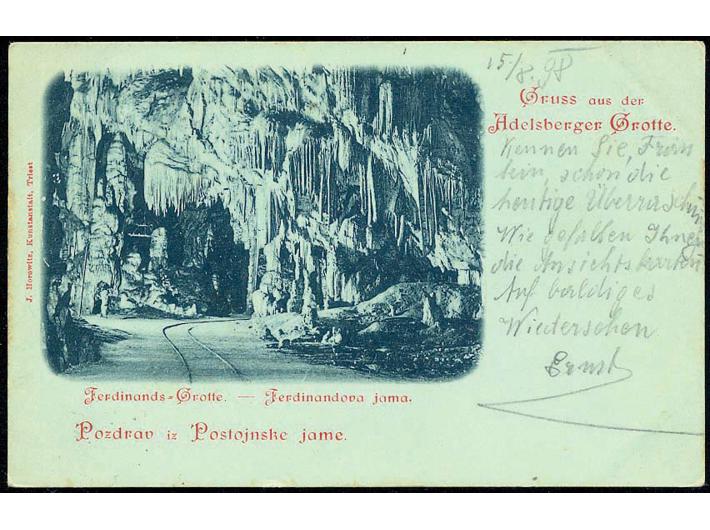 15/8. 98
Gruss aus der
Adelsberger Grotte.
Kennen Sie, Fräu
lein, schon die
heutige Überrasch
Wie gefallen Ihnen
die Ansichtskarten
Auf baldiges
Wiedersehen
Ernst
J. Horowitz, Kunstanstalt, Triest
Ferdinands-Grotte. — Ferdinandova jama.
Pozdrav iz Postojnske jame.